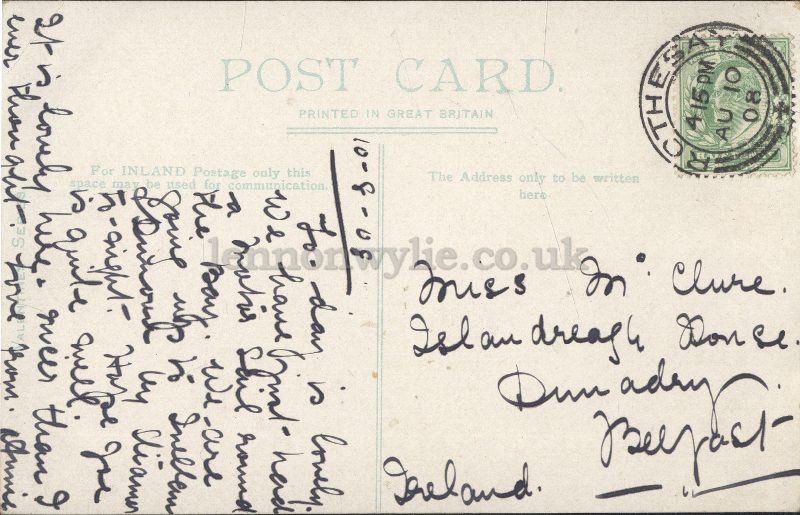 POST CARD.
PRINTED IN GREAT BRITAIN
For INLAND Postage only this
space may be used for communication.
The Address only to be written
here
ROTHESAY
415 PM
AU 10
08
10-8-08
To-day is lovely.
We have just had
a motor sail round
the Bay. We are
going up to
by steamer
to-night. Hope you
is quite well.
It is lovely here - nicer than I
ever thought. Love from. Annie
Miss McClure.
Islandreagh House.
Dunadry.
Belfast
Ireland.
VALENTINES SERIES
lennonwylie.co.uk